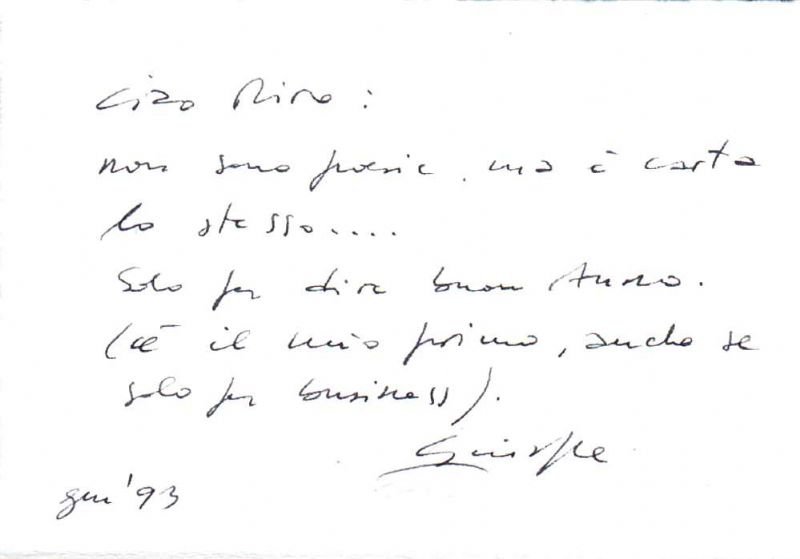 Ciao Rino:
non sono poesie, ma è carta
lo stesso....
Solo per dire buon Anno.
(è il mio primo, anche se
solo per business).
Giuseppe
gen '93